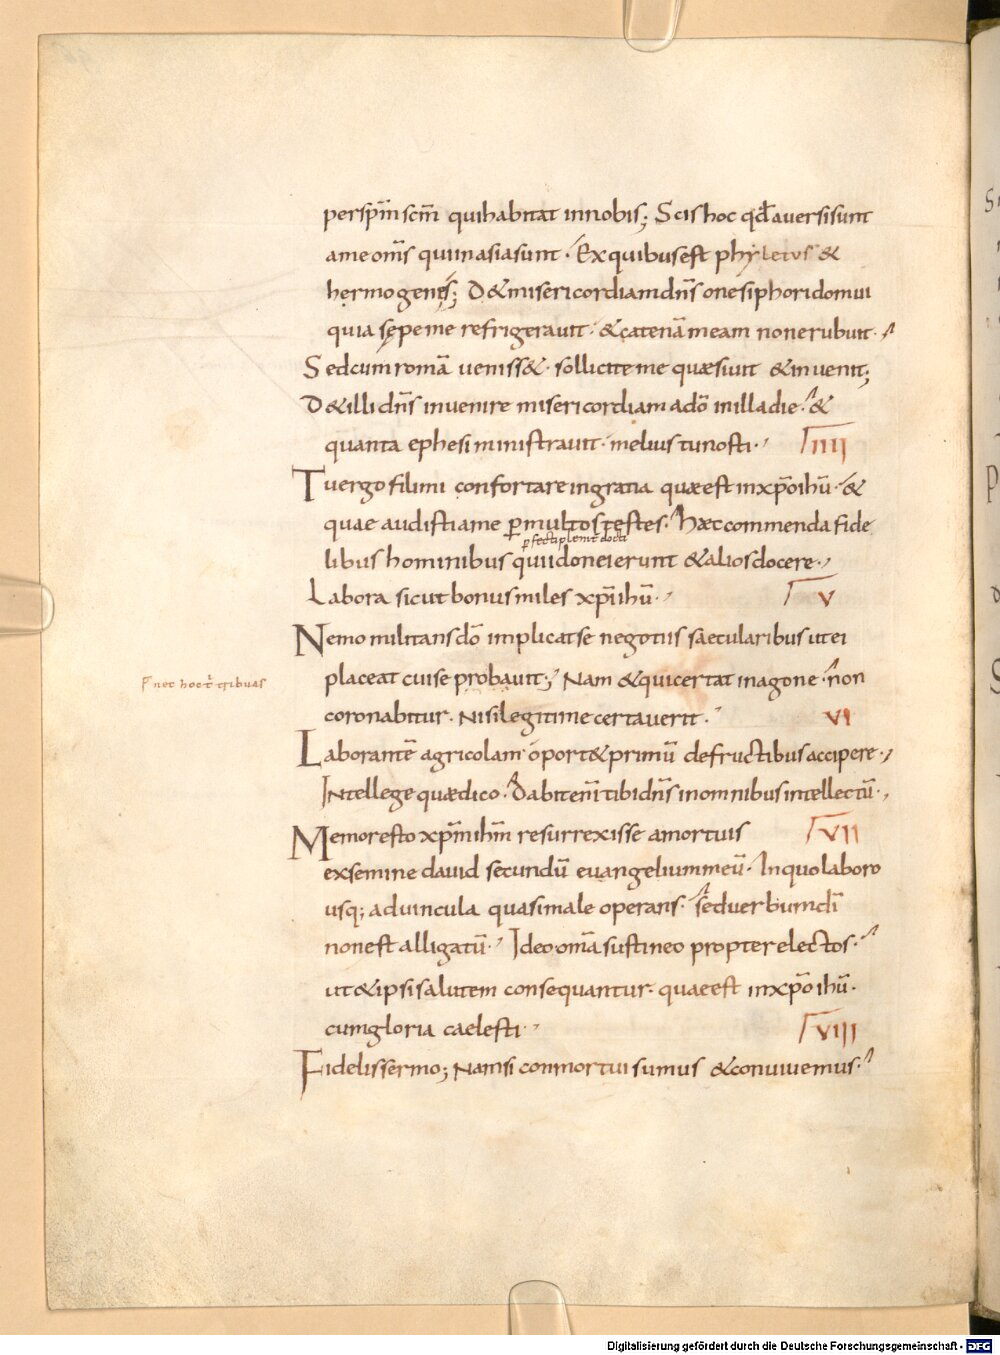 perspm̄ scm̄ qui habitat in nobis; Scis hoc qđ aversi sunt
a me om̄s qui in asia sunt · Ex quibus est phyletus &
hermogenes; D& misericordiam dn̄s onesiphori domui
quia sępe me refrigeravit · & catenā meam non erubuit ·
Sed cum romā veniss& · sollicite me quæsivit & invenit;
D& illi dn̄s invenire misericordiam a dō in illa die · &
quanta ephesi ministravit · melius tu nosti · IIII
Tu ergo fili mi confortare in gratia quæ est in xp̄o ihū · &
quae audisti a me ꝑ multos testes · hæc commenda fide
libus hominibus qui idonei erunt & alios docere ·
Labora sicut bonus miles xp̄i ihū · V
Nemo militans dō implicat se negotiis saecularibus ut ei
placeat cui se probavit; Nam & qui certat in agone · non
F nec hoc t̄ tribuas
coronabitur · Nisi legitime certaverit · VI
Laborantē agricolam oport& primū de fructibus accipere ·
Intellege quæ dico · Dabit eni̅ tibi dn̄s in omnibus intellectū ·
Memor esto xp̄m ihm̄ resurrexisse a mortuis VII
ex semine david secundū evangelium meū · In quo laboro
usq; ad vincula quasi male operans · sed verbum di̅
non est alligatū · Ideo om̄a sustineo propter electos ·
ut & ipsi salutem consequantur · quae est in xp̄o ihū ·
cum gloria caelesti · VIII
Fidelis sermo; Nam si conmortui sumus & convivemus ·
Digitalisierung gefördert durch die Deutsche Forschungsgemeinschaft - DFG